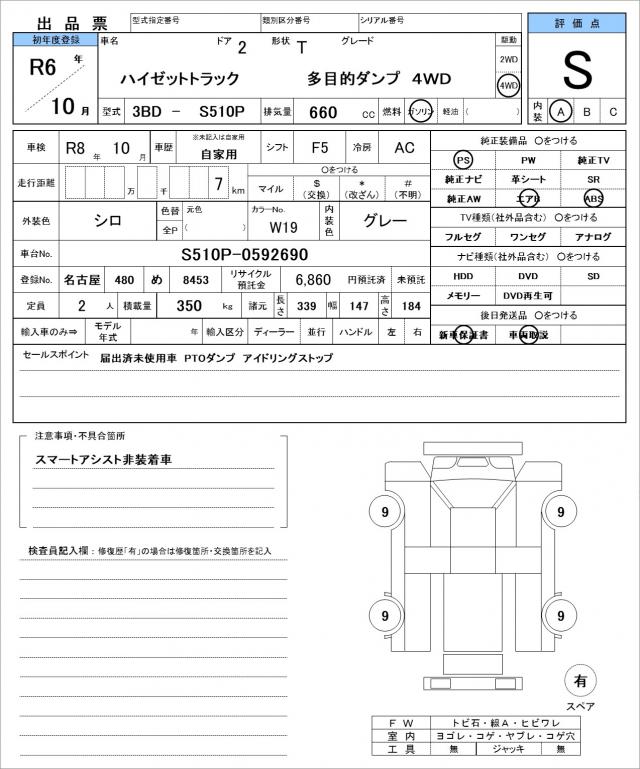 出品票 型式指定番号 類別区分番号 シリアル番号 評価点
初年度登録 車名 ドア 2 形状 T グレード 駆動
R6 年 2WD S
ハイゼットトラック 多目的ダンプ 4WD 4WD
10 月 型式 3BD － S510P 排気量 660 cc 燃料 ガソリン 軽油 ( ) 内装 A B C
車検 R8 年 10 月 車歴 ※未記入は自家用 自家用 シフト F5 冷房 AC 純正装備品 〇をつける
PS PW 純正TV
走行距離 万 千 7 km 〇をつける
マイル $ (交換) * (改ざん) # (不明) 純正ナビ 革シート SR
純正AW エアB ABS
外装色 シロ 色替 元色 カラーNo. 内装色 グレー TV種類(社外品含む) 〇をつける
全P ( ) W19 フルセグ ワンセグ アナログ
車台No. S510P-0592690 ナビ種類(社外品含む) 〇をつける
登録No. 名古屋 480 め 8453 リサイクル預託金 6,860 円預託済 未預託 HDD DVD SD
定員 2 人 積載量 350 kg 諸元 長さ 339 幅 147 高さ 184 メモリー DVD再生可
後日発送品 〇をつける
輸入車のみ⇒ モデル年式 年 輸入区分 ディーラー 並行 ハンドル 左 右 新車保証書 車両取説
セールスポイント 届出済未使用車 PTOダンプ アイドリングストップ
注意事項・不具合箇所
スマートアシスト非装着車
9 9
検査員記入欄：修復歴「有」の場合は修復箇所・交換箇所を記入
9 9
有
スペア
FW トビ石・線A・ヒビワレ
室内 ヨゴレ・コゲ・ヤブレ・コゲ穴
工具 無 ジャッキ 無